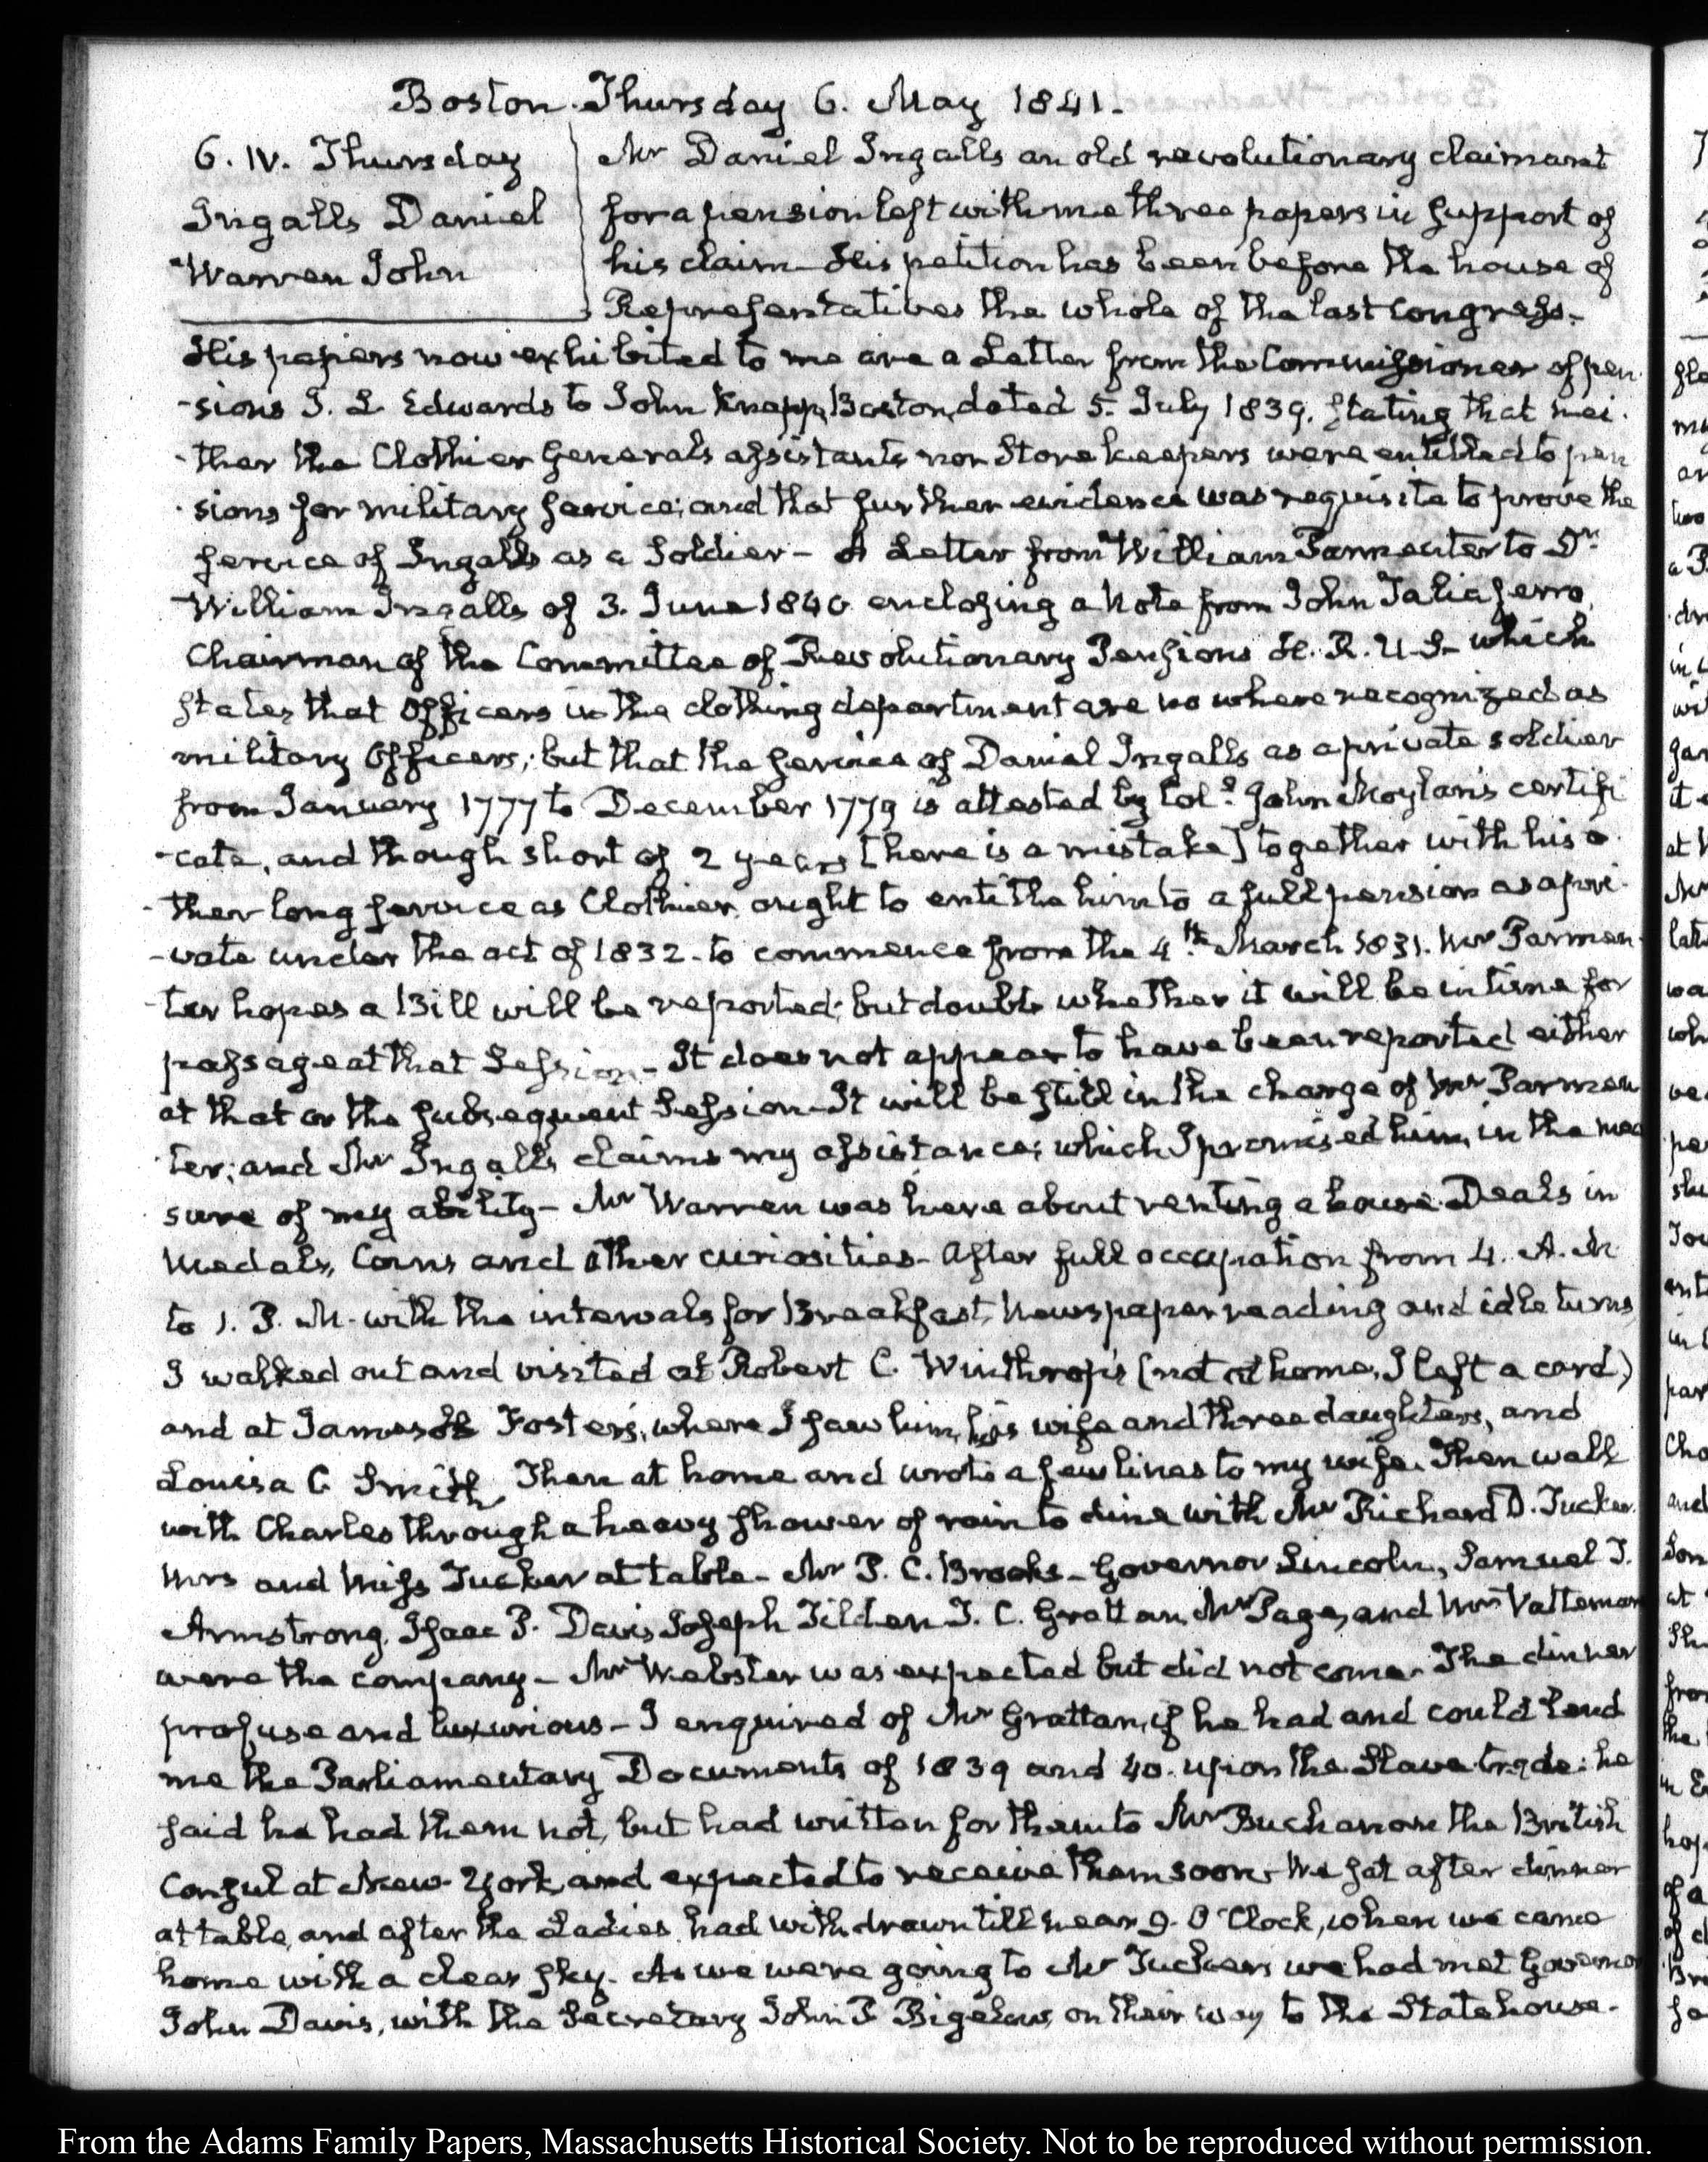 Boston Thursday 6. May 1841.
6. IV. Thursday
Ingalls Daniel
Warren John
Mr Daniel Ingalls an old revolutionary claimant
for a pension left with me three papers in support of
his claim. His petition has been before the house of
Representatives the whole of the last Congress.
His papers now exhibited to me are a Letter from the Commissioner of pen-
-sions J. L. Edwards to John Knapp, Boston, dated 5. July 1839. stating that nei-
-ther the Clothier Generals assistants nor Store keepers were entitled to pen
-sions for military service; and that further evidence was requisite to prove the
service of Ingalls as a Soldier— A Letter from William Parmenter to Dr.
William Ingalls of 3. June 1840 enclosing a Note from John Taliaferro,
Chairman of the Committee of Revolutionary Pensions H. R. U.S— which
states that Officers in the clothing department are no where recognized as
military Officers; but that the service of Daniel Ingalls as a private soldier
from January 1777 to December 1779 is attested by Col. John Moylan's certifi
-cate, and though short of 2 years [here is a mistake] together with his o-
-ther long service as Clothier, ought to entitle him to a full pension as a pri-
-vate under the act of 1832. to commence from the 4th March 1831. Mr Parmen-
-ter hopes a Bill will be reported; but doubts whether it will be in time for
passage at that Session— It does not appear to have been reported either
at that or the subsequent Session— It will be still in the charge of Mr Parmen
-ter; and Mr Ingalls claims my assistance; which I promised him, in the mea
sure of my ability— Mr Warren was here about renting a house. Deals in
Medals, Coins and other curiosities— After full occupation from 4. A. M
to 1. P. M. with the intervals for Breakfast, Newspaper reading and idle turns,
I walked out and visited at Robert C. Winthrop's (not at home, I left a card)
and at James H Foster's, where I saw him, his wife and three daughters, and
Louisa C Smith. Then at home and wrote a few lines to my wife. Then walk
with Charles through a heavy shower of rain to dine with Mr Richard D. Tucker.
Mrs and Miss Tucker at table— Mr P. C. Brooks— Governor Lincoln, Samuel T.
Armstrong, Isaac P. Davis, Joseph Tilden T. C. Grattan, Mr Page, and Monsr Vattemar
were the company— Mr Webster was expected but did not come. The dinner
profuse and luxurious— I enquired of Mr Grattan, if he had and could lend
me the Parliamentary Documents of 1839 and 40. upon the Slave-trade: he
said he had them not, but had written for them to Mr Buchanan the British
Consul at New-York, and expected to receive them soon— We sat after dinner
at table, and after the Ladies had withdrawn till near 9. O'Clock, when we came
home with a clear sky. As we were going to Mr Tuckers we had met Governor
John Davis, with the Secretary John P Bigelow, on their way to the Statehouse.
From the Adams Family Papers, Massachusetts Historical Society. Not to be reproduced without permission.